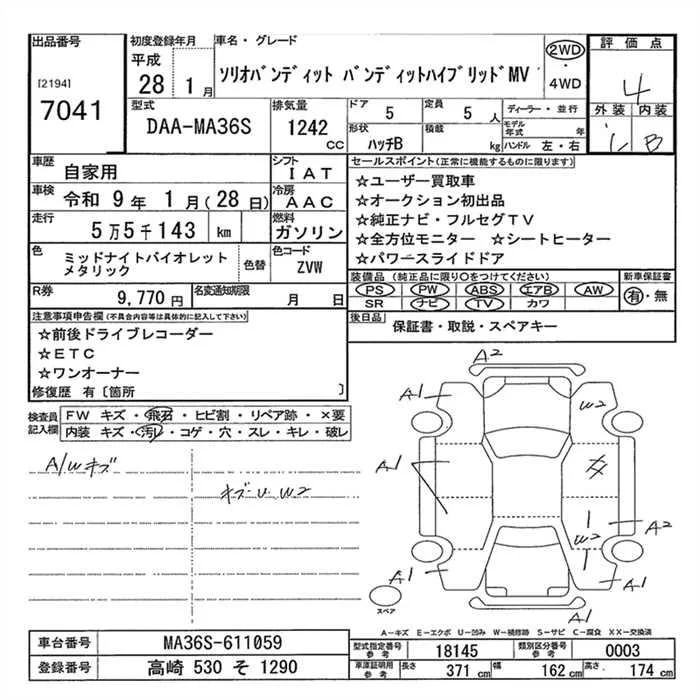 出品番号
[2194]
7041
初度登録年月
平成
28 1月
車名・グレード
ソリオバンディット バンディットハイブリッドMV
2WD
・
4WD
評価点
4
外装 内装
B
型式
DAA-MA36S
排気量
1242
CC
ドア
5
定員
5 人
ディーラー・並行
形状
ハッチB
積載
kg
モデル
年式 年
ハンドル 左・右
車歴
自家用
シフト
IAT
車検
令和 9年 1月(28日)
冷房
AAC
走行
5万5千143 km
燃料
ガソリン
色
ミッドナイトバイオレット
メタリック
色替
色コード
ZVW
R券
9,770円
名変通知期限
月 日
セールスポイント(正常に機能するものに限ります)
☆ユーザー買取車
☆オークション初出品
☆純正ナビ・フルセグTV
☆全方位モニター ☆シートヒーター
☆パワースライドドア
装備品 (純正品に限り〇をつけてください)
PS PW ABS エアB AW
SR ナビ TV カワ
新車保証書
有・無
後日品
保証書・取説・スペアキー
注意事項申告欄(不具合内容等は具体的に記入して下さい)
☆前後ドライブレコーダー
☆ETC
☆ワンオーナー
修復歴 有〔箇所 〕
検査員
記入欄
FW キズ・飛石・ヒビ割・リペア跡・×要
内装 キズ・汚レ・コゲ・穴・スレ・キレ・破レ
A/Wキズ
キズ・U W2
A2
A1
W2
A1
A2
W2
A1
A1
A1
スペア
A-キズ E-エクボ U-凹み W-補修跡 S-サビ C-腐食 XX-交換済
車台番号
MA36S-611059
登録番号
高崎 530 そ 1290
型式指定番号
参考
18145
類別区分番号
参考
0003
車庫証明用
参考
長さ 371 cm
幅 162 cm
高さ 174 cm